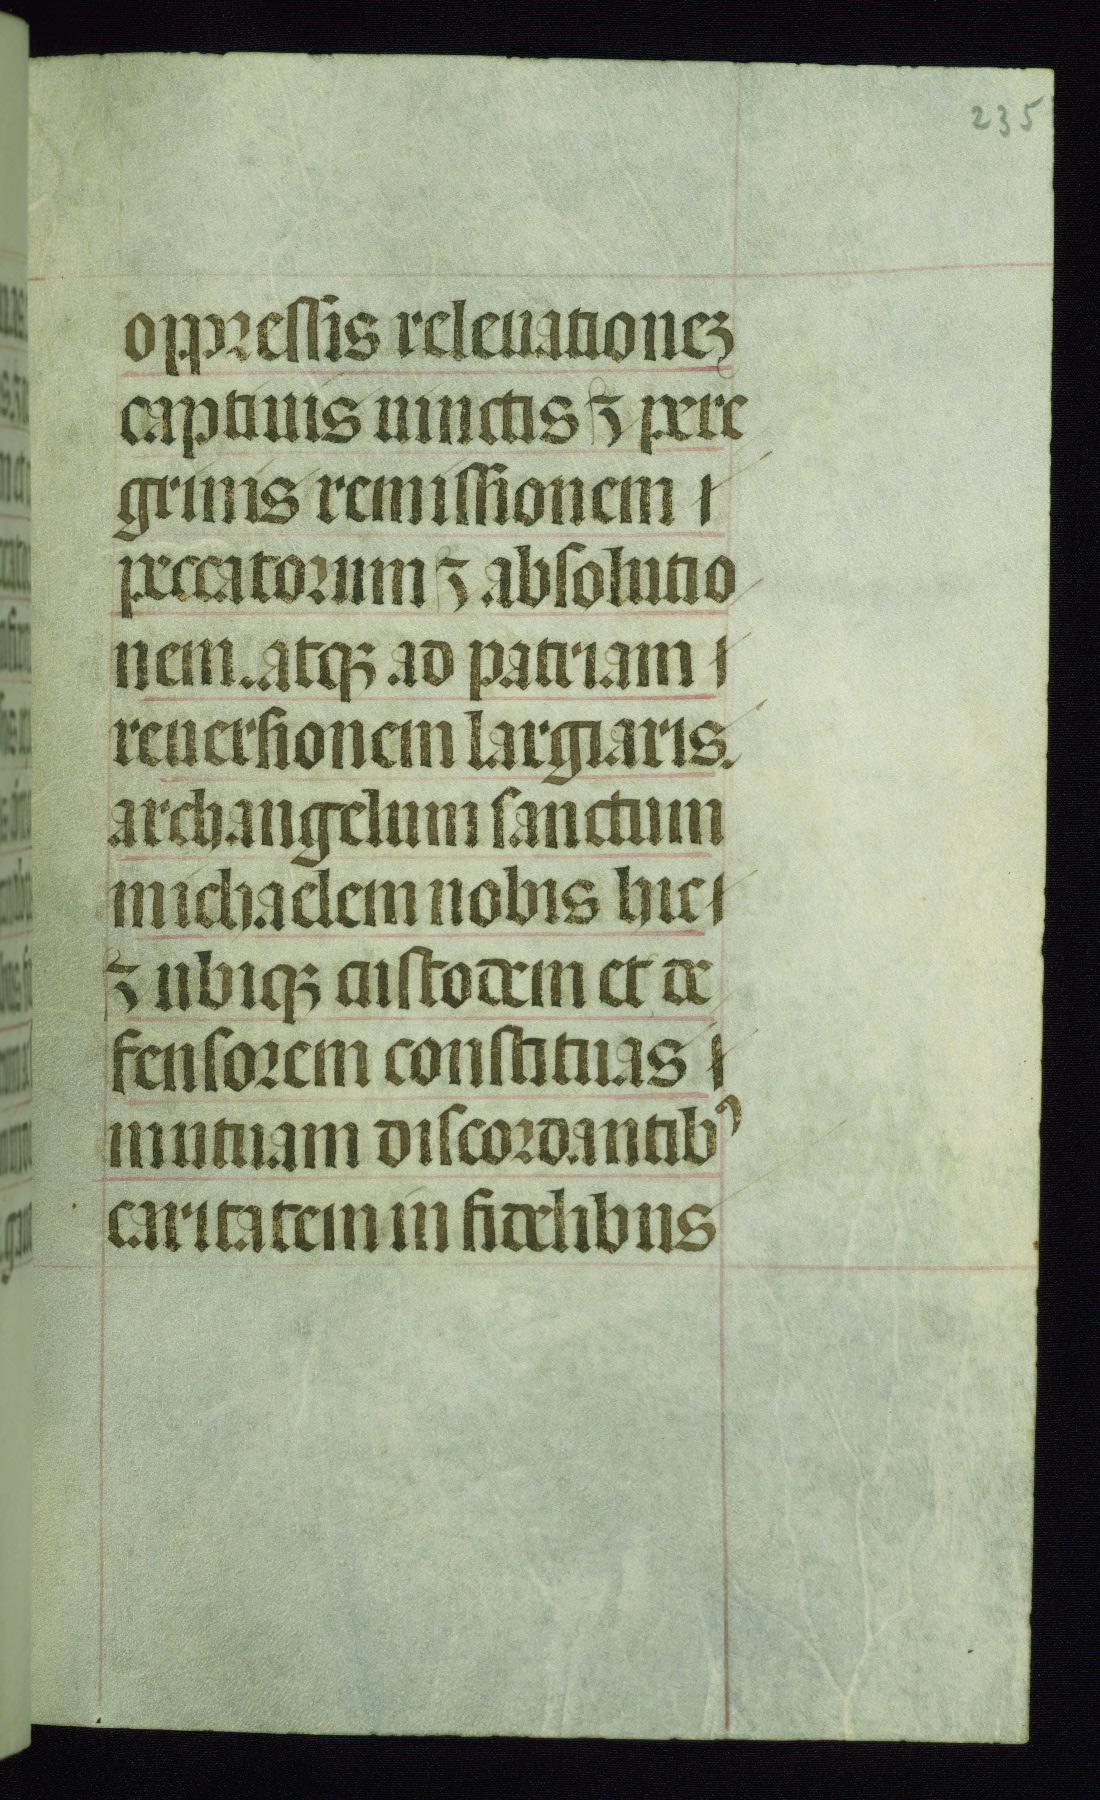 235
oppressis releuationeꝫ
captiuis uinctis ⁊ pere
grinis remissionem
peccatorum ⁊ absolutio
nem. atqꝫ ad patriam
reuersionem largiaris.
archangelum sanctum
michaelem nobis hic
⁊ ubiqꝫ custodem et de
fensorem constituas
mutuam discordantibꝰ
caritatem in fidelibus